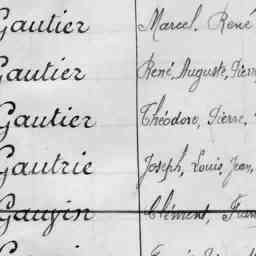 Gautier Marcel René
Gautier René, Auguste, Pierre
Gautier Théodore, Pierre,
Gautrie Joseph, Louis, Jean,
Gauvin Clément,